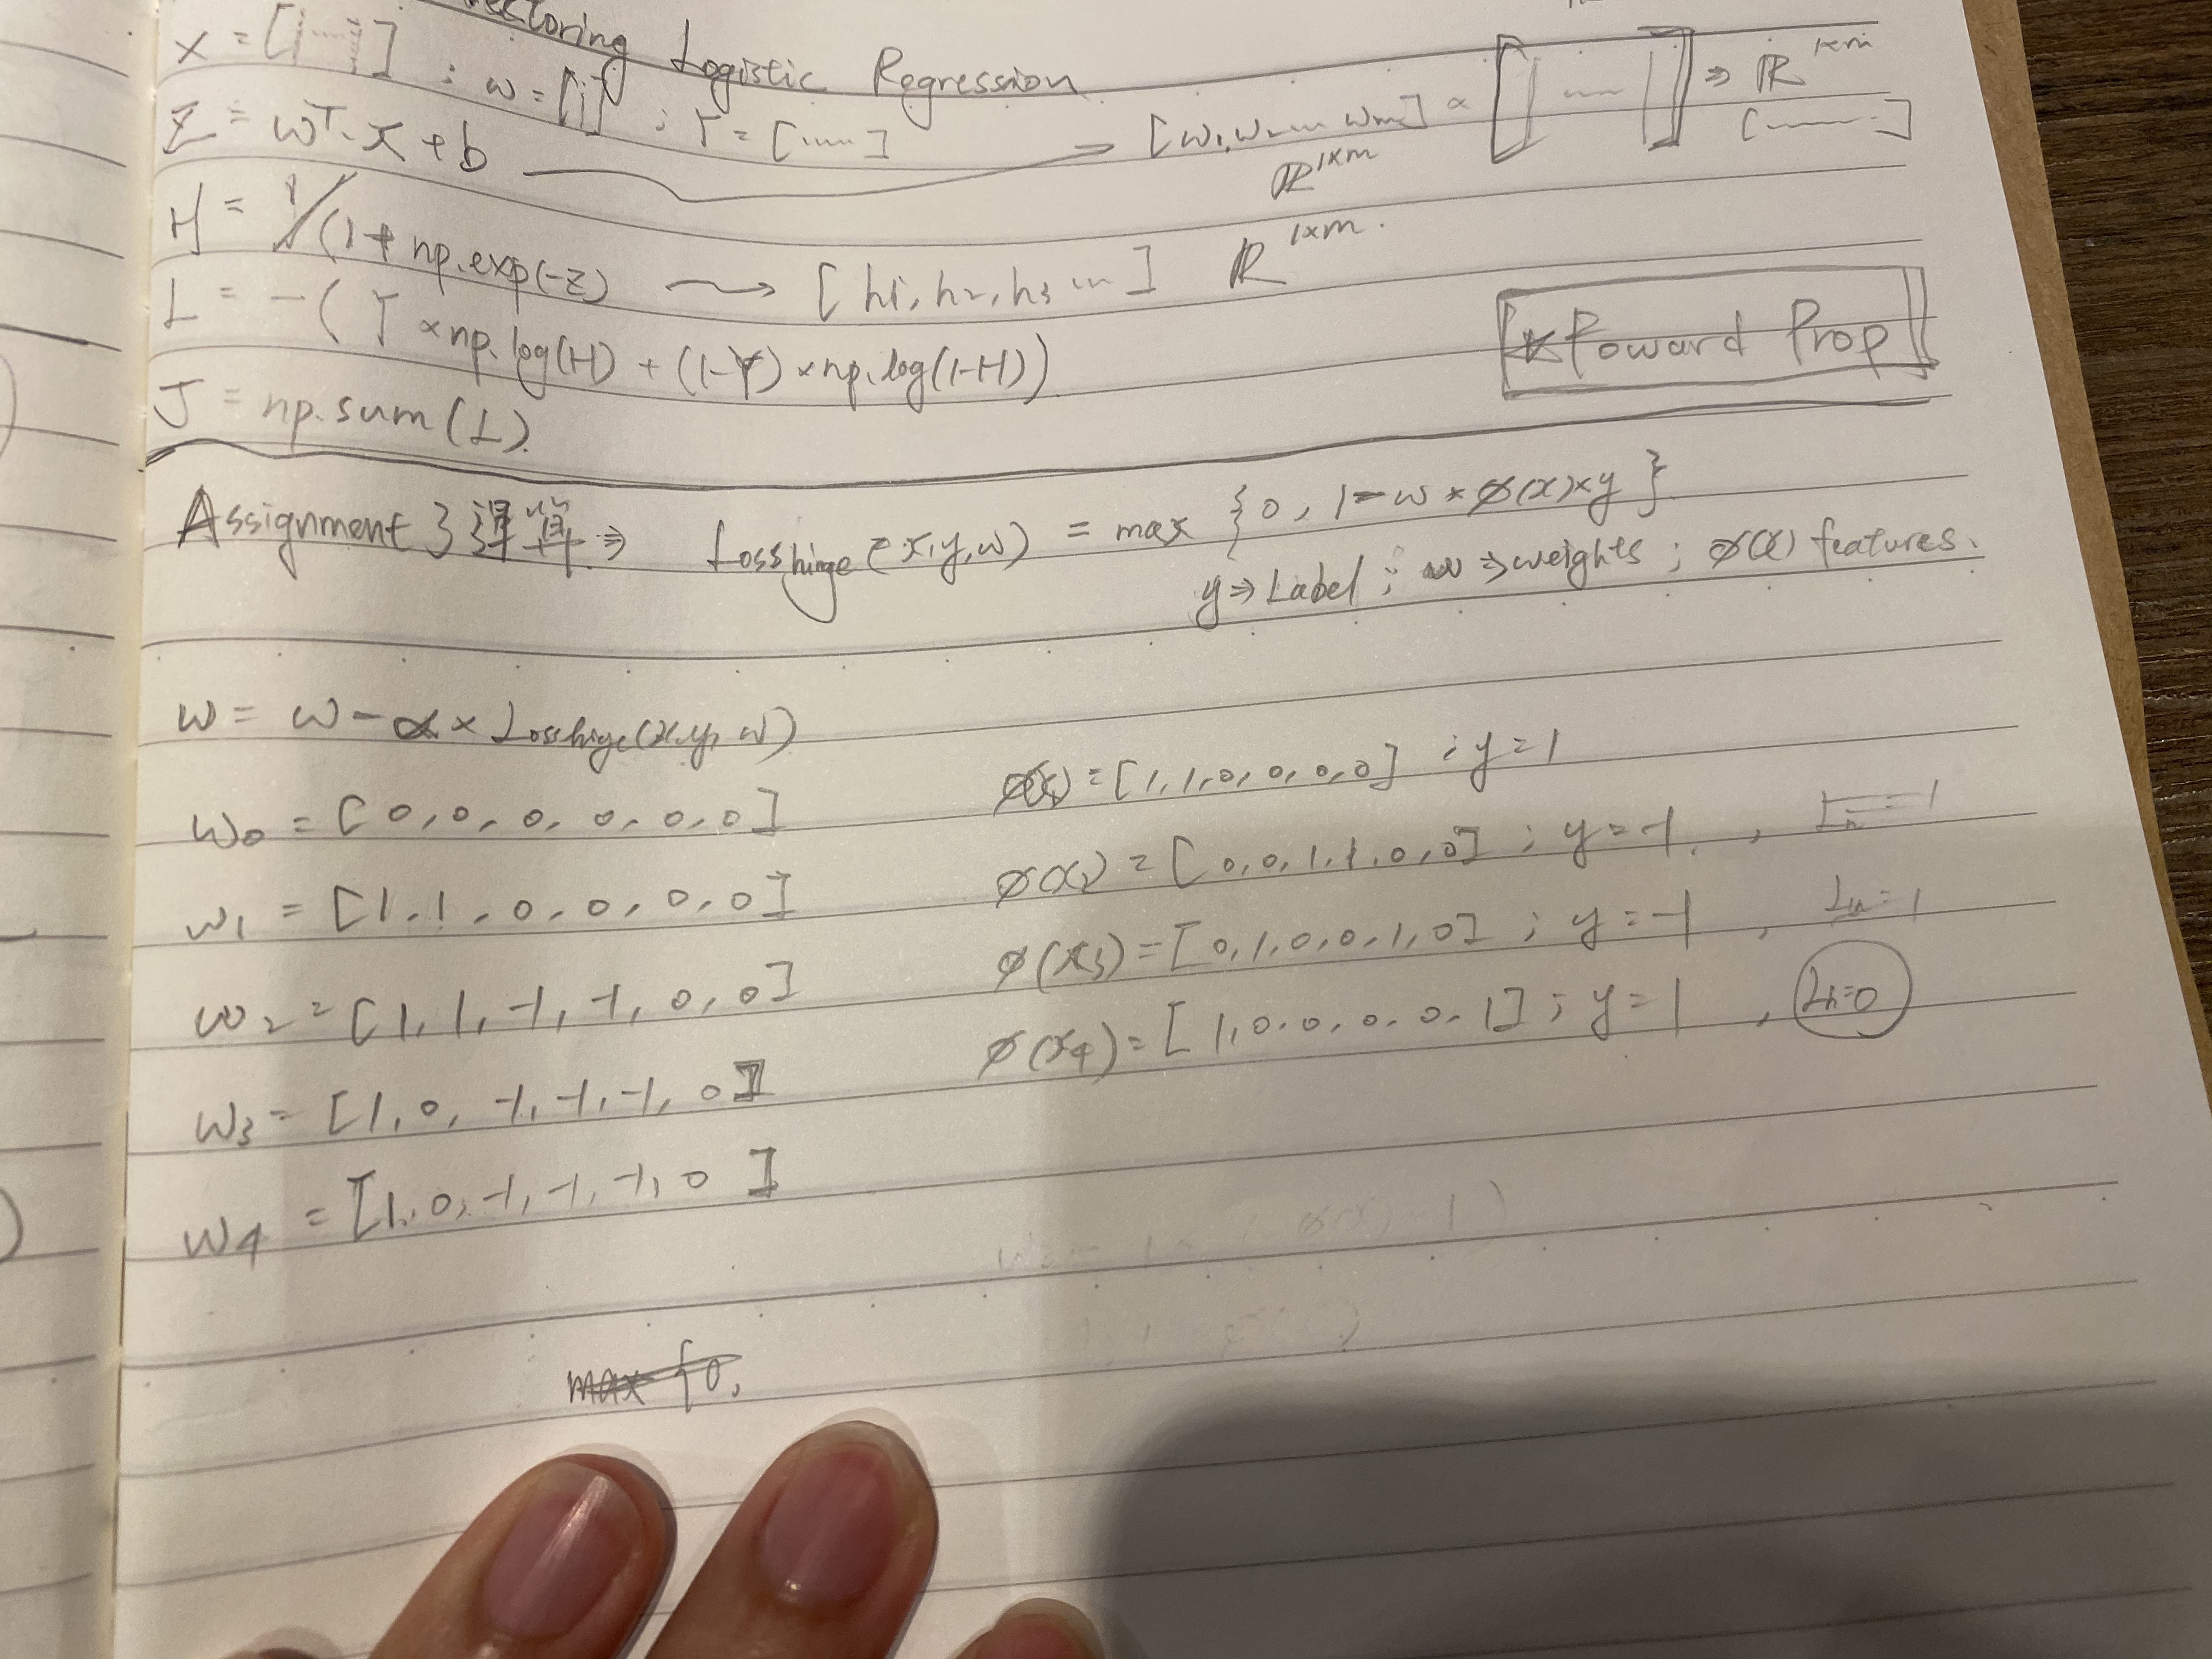 Vectoring Logistic Regression
X = [ ] ; w = [ ] ; Y = [ ]
Z = wT. X + b → [w1, w2 ... wm] × [ ] ⇒ R 1×m
R 1×m
H = 1/(1+ np.exp(-z) → [h1, h2, h3 ...] R 1×m.
L = -(Y × np.log(H) + (1-Y) × np.log(1-H))
J = np.sum(L) Foward Prop
Assignment ⇒ Losshinge(x,y,w) = max {0, 1-w × φ(x) × y}
y ⇒ Label ; w ⇒ weights ; φ(x) features.
w = w - α × Losshinge(x,y,w)
w0 = [0, 0, 0, 0, 0, 0] = [1, 1, 0, 0, 0, 0] ; y = 1
w1 = [1, 1, 0, 0, 0, 0] = [0, 0, 1, 1, 0, 0] ; y = -1, = 1
w2 = [1, 1, -1, -1, 0, 0] φ(x3) = [0, 1, 0, 0, 1, 0] ; y = -1, Lh = 1
w3 = [1, 0, -1, -1, -1, 0] φ(x4) = [1, 0, 0, 0, 0, 1] ; y = 1, Lh=0
w4 = [1, 0, -1, -1, -1, 0]